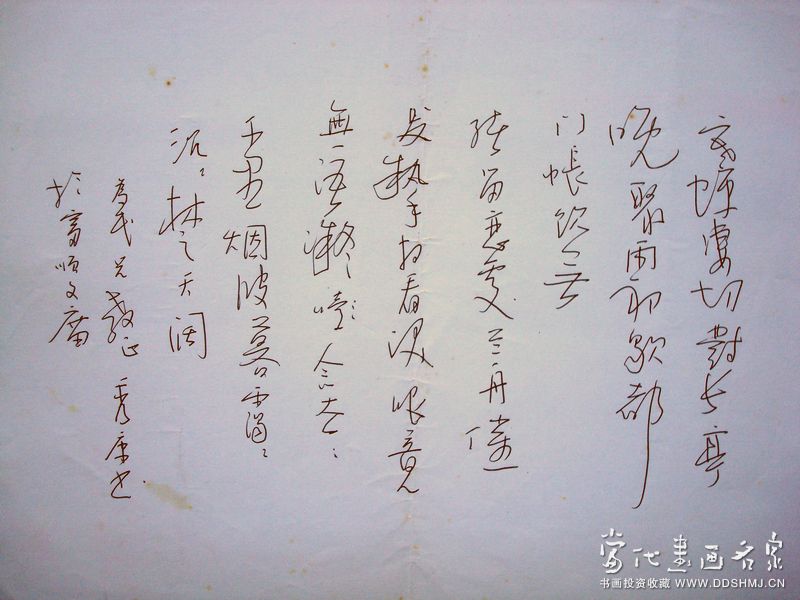 寒蝉凄切對长亭
晚骤雨初歇都
门帳饮无
绪留恋处兰舟催
发执手相看泪眼竟
無语凝噎念去々
千里烟波暮霭
沉々楚天阔
為民兄教正 秀康书
於富顺文廟
當代書画名家
书画投资收藏 WWW.DDSHMJ.CN